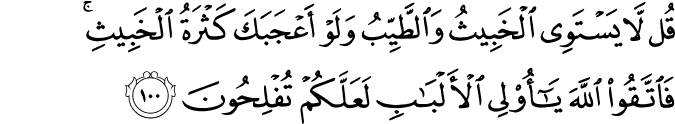 قُل لَّا يَسْتَوِى ٱلْخَبِيثُ وَٱلطَّيِّبُ وَلَوْ أَعْجَبَكَ كَثْرَةُ ٱلْخَبِيثِ ۚ
فَٱتَّقُوا۟ ٱللَّهَ يَـٰٓأُو۟لِى ٱلْأَلْبَـٰبِ لَعَلَّكُمْ تُفْلِحُونَ ١٠٠